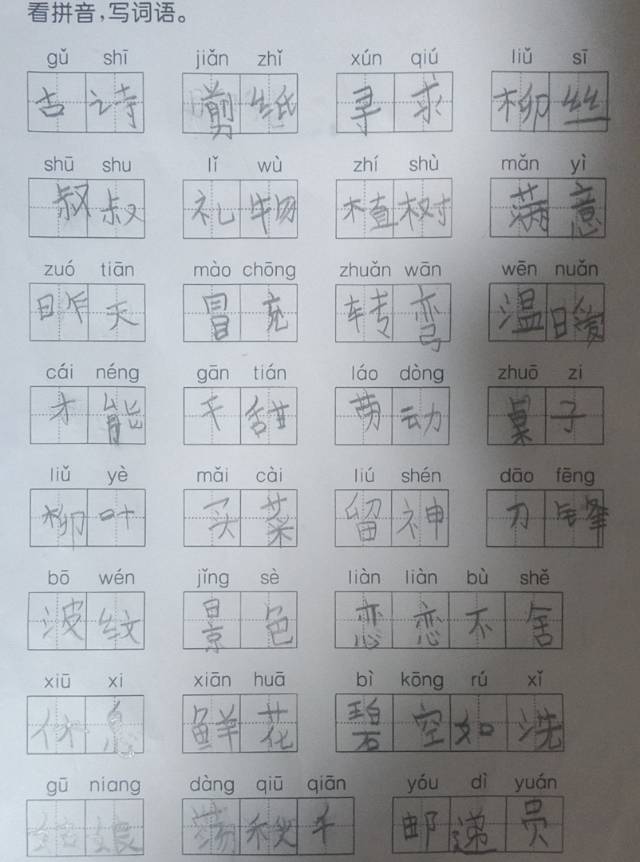 看拼音，写词语。
gǔ shī jiǎn zhǐ xún qiú liǔ sī
古诗 剪纸 寻求 柳丝
shū shu lǐ wù zhí shù mǎn yì
叔叔 礼物 植树 满意
zuó tiān mào chōng zhuǎn wān wēn nuǎn
昨天 冒充 转弯 温暖
cái néng gān tián láo dòng zhuō zi
才能 干甜 劳动 桌子
liǔ yè mǎi cài liú shén dāo fēng
柳叶 买菜 留神 刀锋
bō wén jǐng sè liàn liàn bù shě
波纹 景色 恋恋不舍
xiū xi xiān huā bì kōng rú xǐ
休息 鲜花 碧空如洗
gū niang dàng qiū qiān yóu dì yuán
姑娘 荡秋千 邮递员